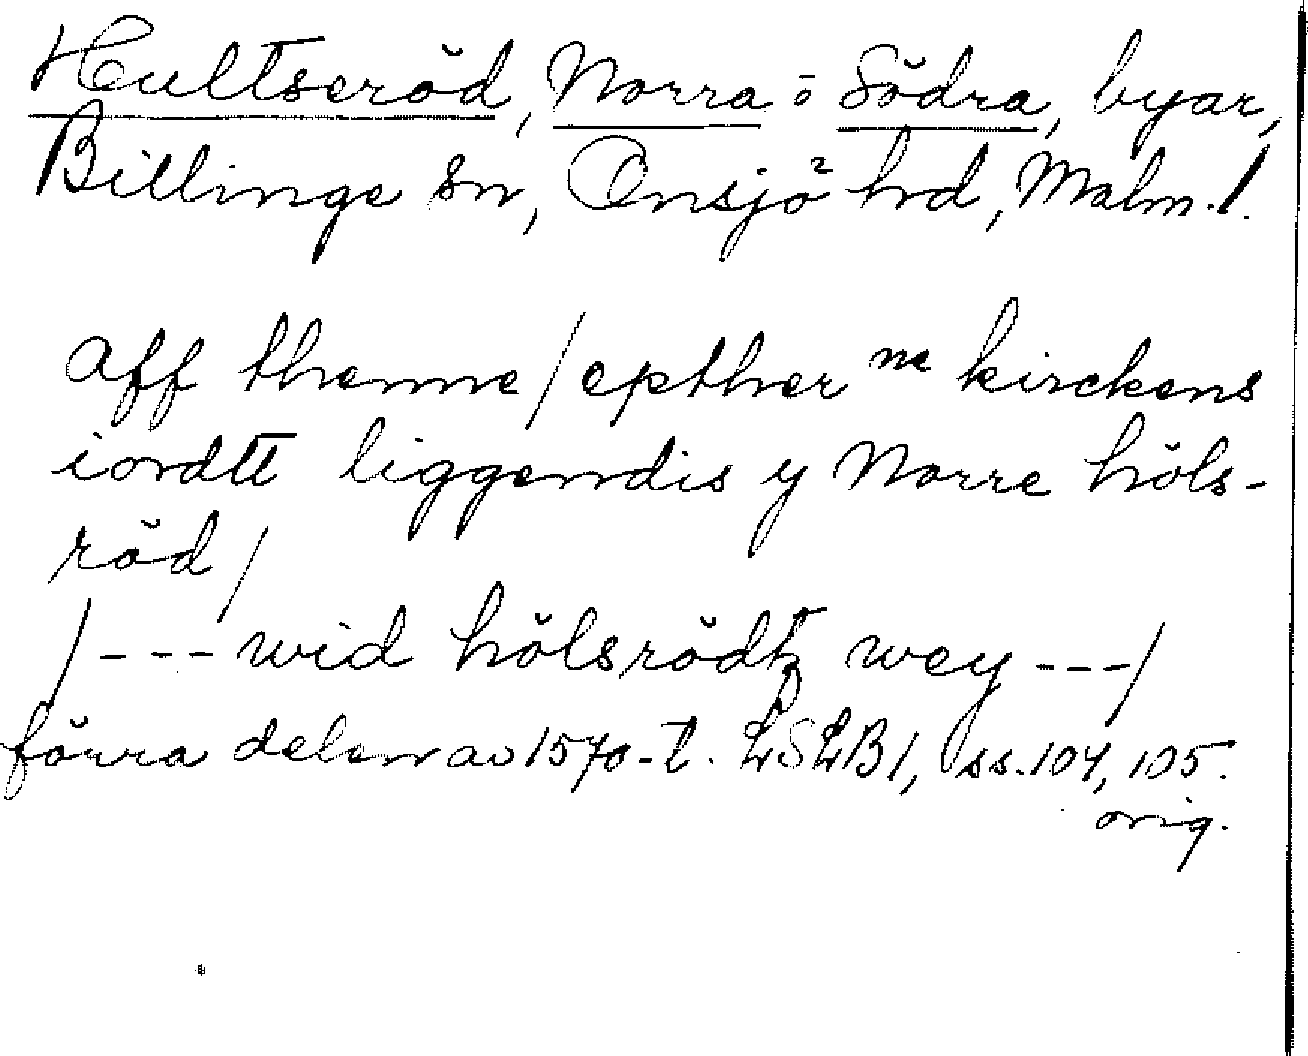 Hultseröd, Norra o Södra, byar,
Billinge sn, Onsjö hrd, Malm. l.
aff thenne / epther ne kirckens
iordtt liggendis y Norre höls-
röd /
/ --- wid hölsrödtz wey --- /
förra delen av 1570-t. LSLB 1, ss. 104, 105.
orig.